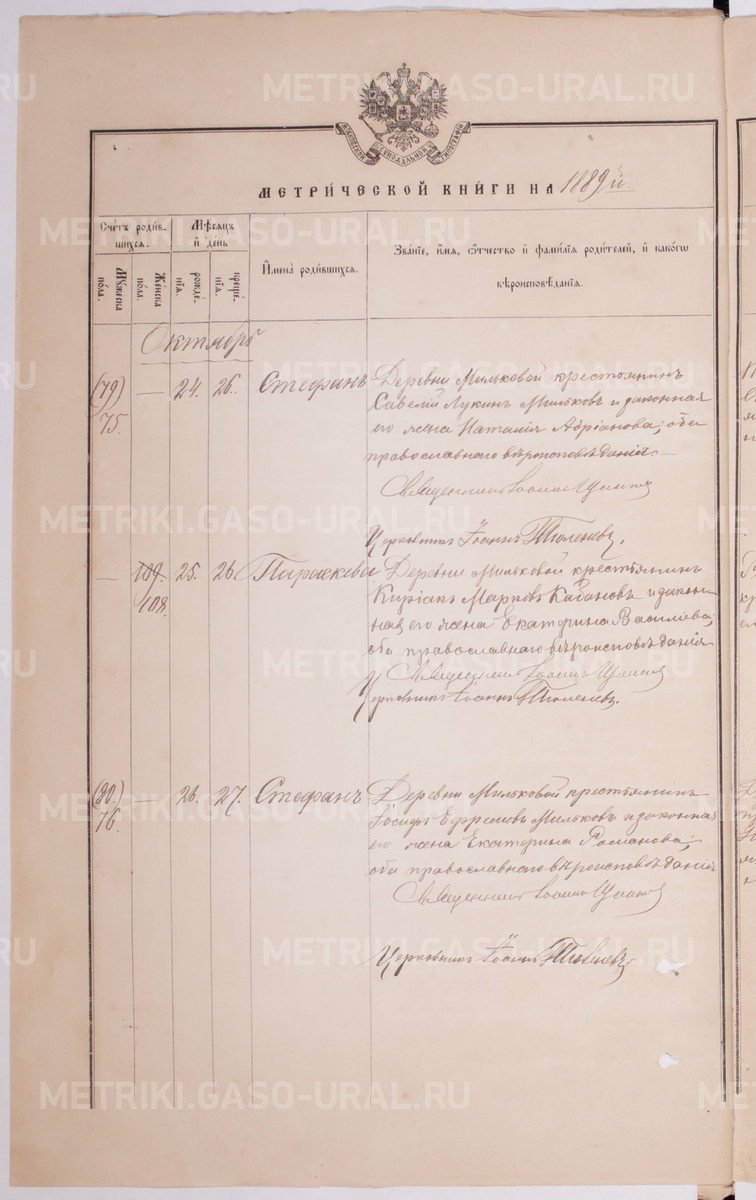 МОСКОВСКОЙ СѴНОДАЛЬНОЙ ТИПОГРАФІИ
МЕТРИ́ЧЕСКОЙ КНИ́ГИ НА 1889 й.
Сче́тъ роди́в-
шихся.
Мѣ́сяцъ
и҆ де́нь
И҆мена̀ роди́вшихся.
Зва́ніе, и҆́мя, ѻ҆́тчество и҆ фами́лія роди́телей, и҆ како́гѡ
вѣроисповѣ́данія.
Мꙋ́жеска
по́ла.
Же́нска
по́ла.
рожде́-
нія.
креще́-
нія.
Октябрь
(79) 75. — 24. 26. Стефанъ Деревни Мильковой крестьянинъ
Савелій Лукинъ Мильковъ и законная
его жена Наталія Адріанова; оба
православнаго вѣроисповѣданія
Священникъ Іоаннъ
Церковникъ Іоаннъ Тюленевъ.
— 109. 108. 25. 26. Параскева Деревни Мильковой крестьянинъ
Киріакъ Марковъ Кабановъ и закон-
ная его жена Екатерина Василіева;
оба православнаго вѣроисповѣданія
Священникъ Іоаннъ
Церковникъ Іоаннъ Тюленевъ.
(80.) 76. — 26. 27. Стефанъ Деревни Мильковой крестьянинъ
Іосифъ Ефремовъ Мильковъ и законная
его жена Екатерина Романова;
оба православнаго вѣроисповѣданія
Священникъ Іоаннъ
Церковникъ Іоаннъ Тюленевъ.
METRIKI.GASO-URAL.RU